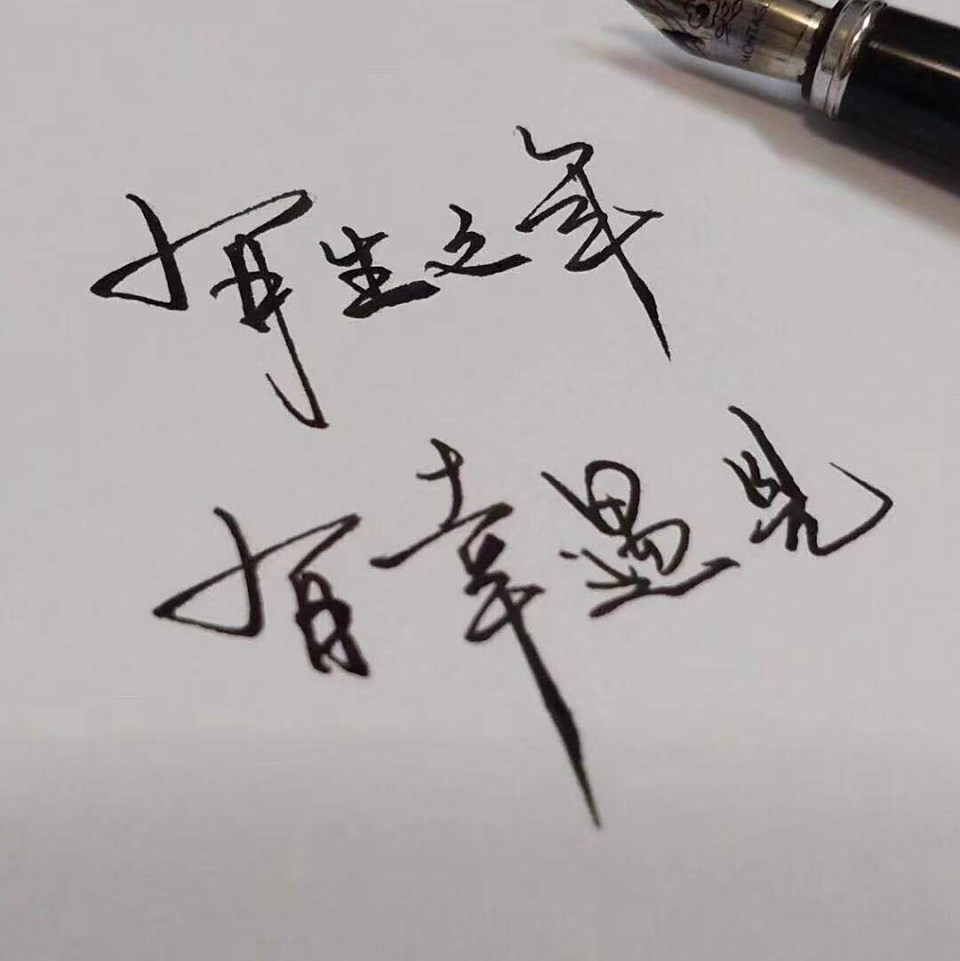 有生之年
有幸遇见